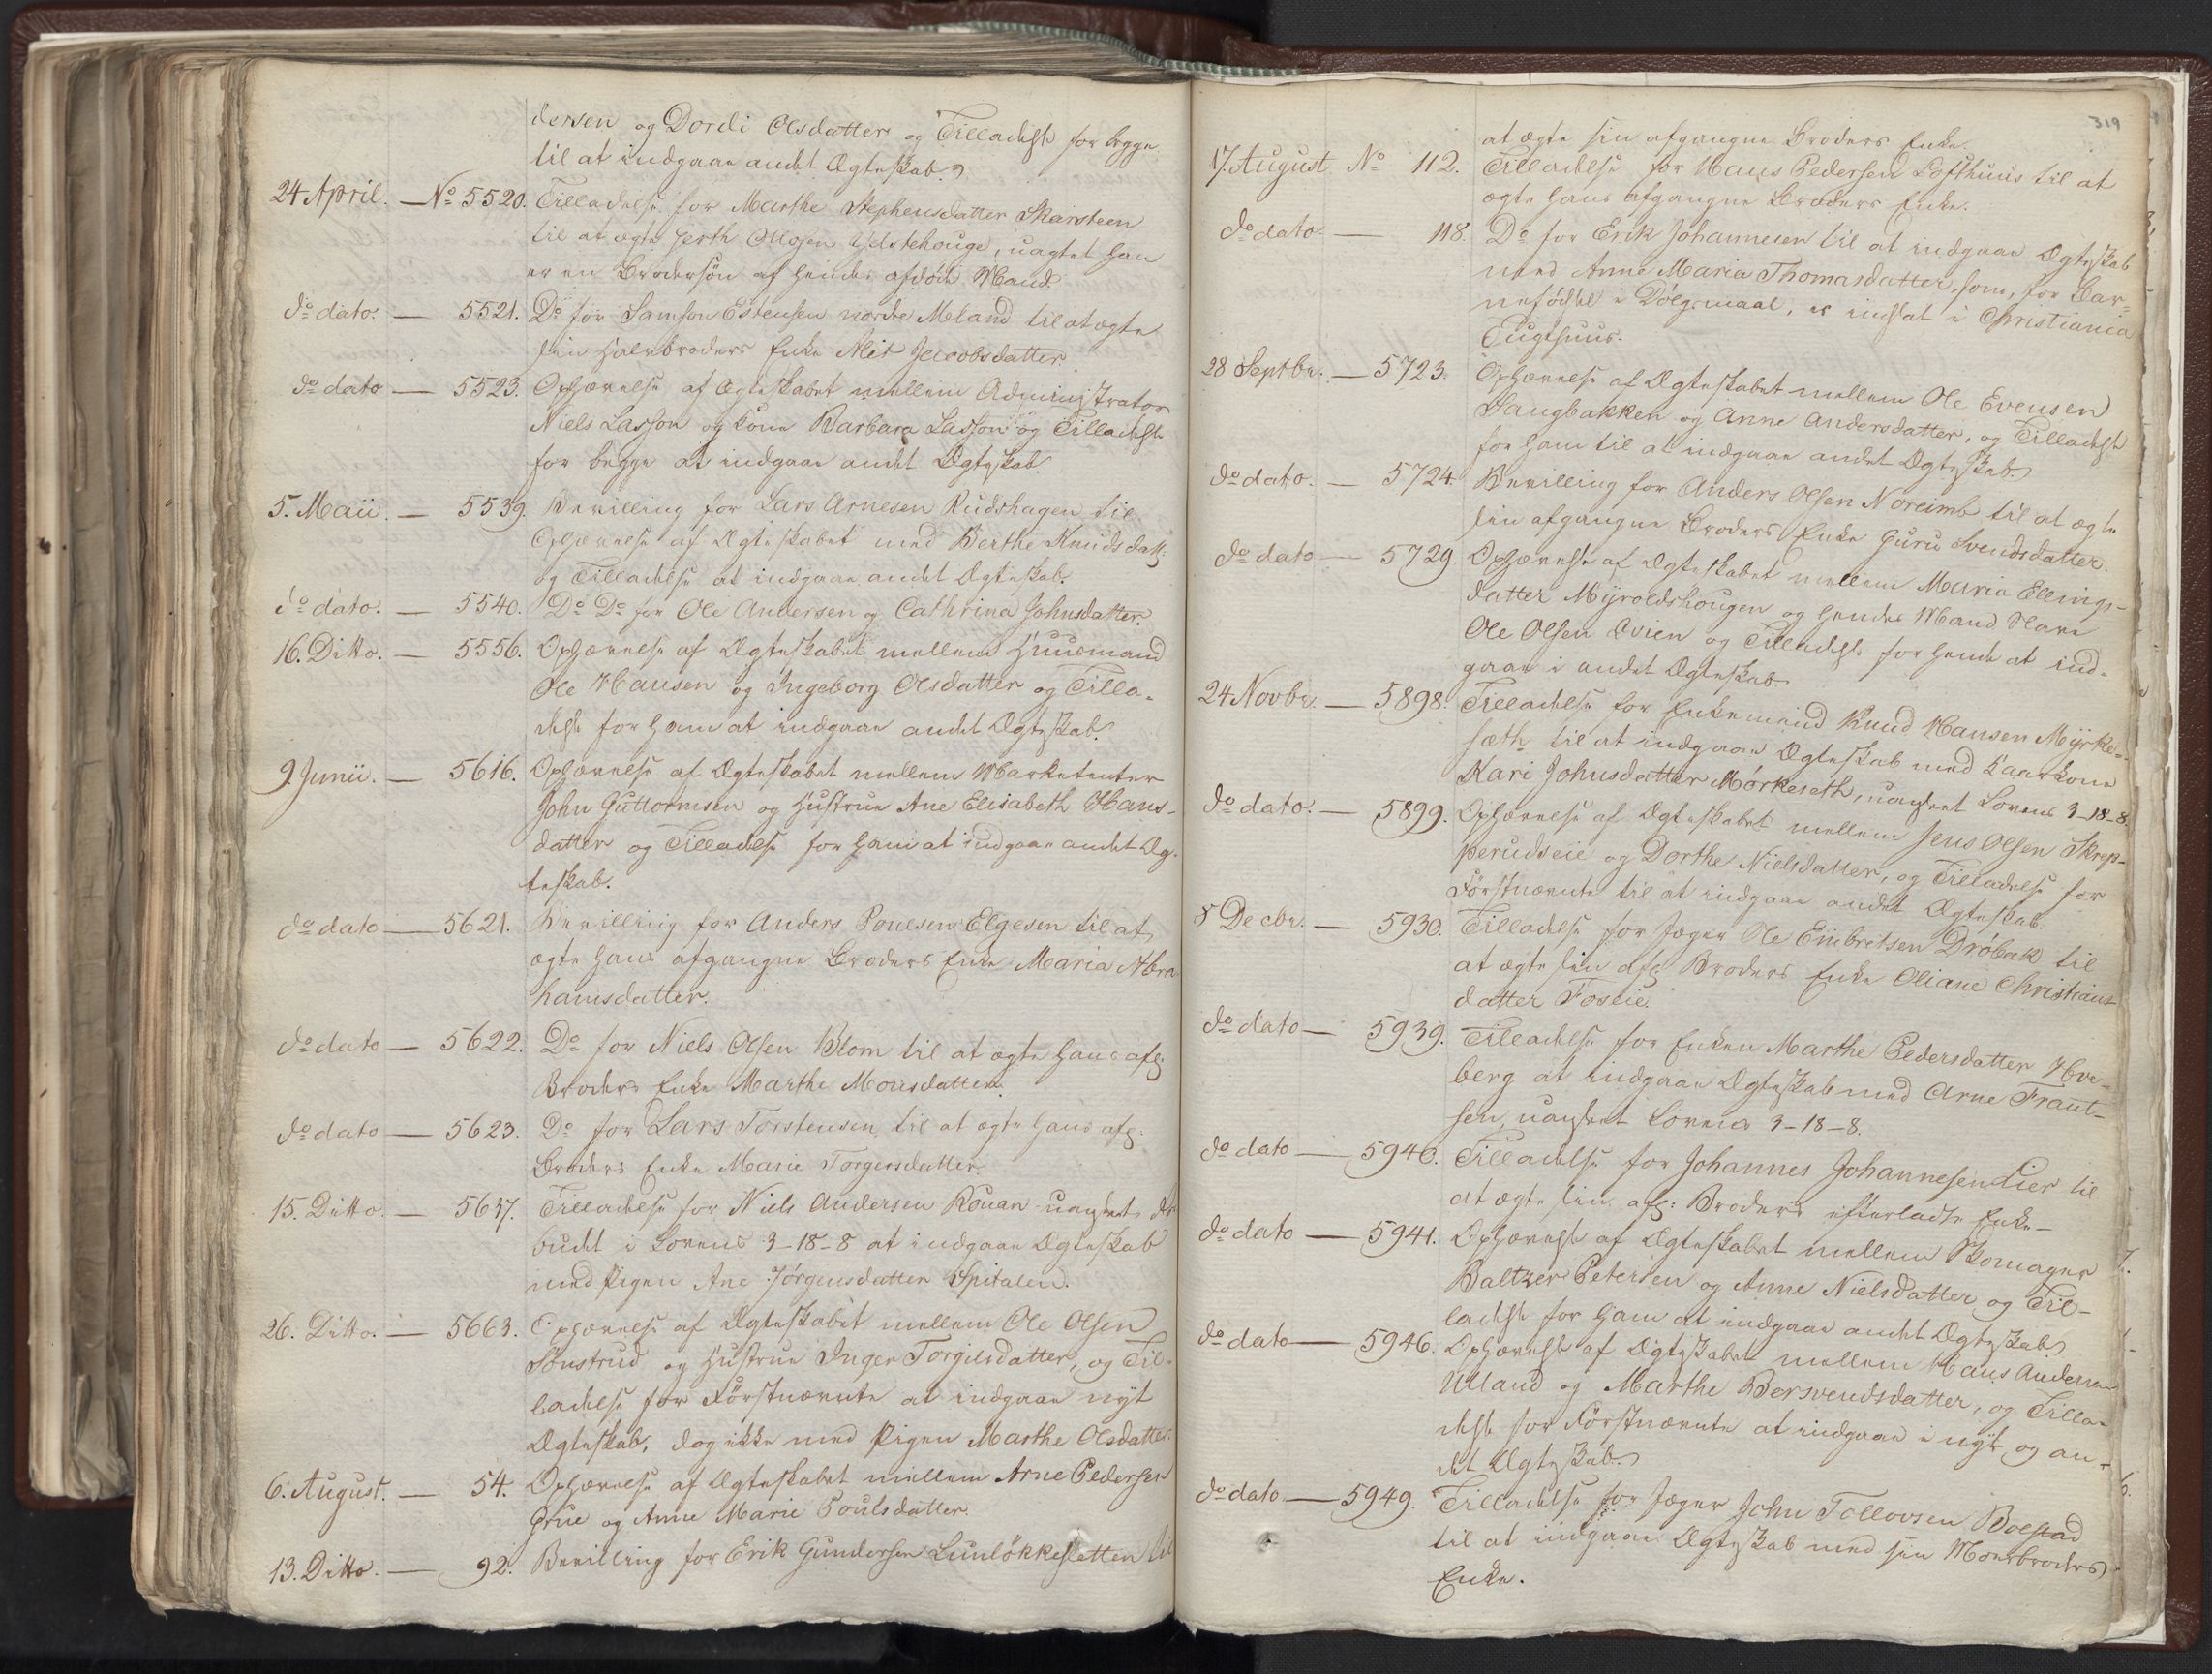 dersen og Dordi Olsdatter og Tilladelse for begge
til at indgaae andet Ægteskab.
24 April. — No 5520. Tilladelse for Marthe Stephensdatter Skarsteen
til at ægte Gerth Ottosen Ydstehouge, uagtet han
er en Brodersøn af hendes afdøde Mand.
do dato. — 5521. Do for Samson Estensen nordre Meland til at ægte
sin Halvbroders Enke Alet Jacobsdatter.
do dato — 5523. Ophævelse af Ægteskabet mellem Administrator
Niels Lasson og Kone Barbara Lasson og Tilladelse
for begge at indgaae andet Ægteskab.
5. Maii. — 5539. Bevilling for Lars Arnesen Rudshagen til
Ophævelse af Ægteskabet med Berthe Knudsdatt:
og Tilladelse at indgaae andet Ægteskab.
do dato. — 5540. Do Do for Ole Andersen og Cathrina Johnsdatter.
16. Ditto. — 5556. Ophævelse af Ægteskabet mellem Huusmand
Ole Hansen og Ingeborg Olsdatter og Tilla-
delse for ham at indgaae andet Ægteskab.
9. Junii. — 5616. Ophævelse af Ægteskabet mellem Marketenter
John Guttormsen og Hustrue Ane Elisabeth Hans-
datter og Tilladelse for ham at indgaae andet Æg-
teskab.
do dato — 5621. Bevilling for Anders Poulsen Elgesem til at
ægte hans afgangne Broders Enke Maria Abra
hamsdatter.
do dato — 5622. Do for Niels Olsen Blom til at ægte hans afg:
Broders Enke Marthe Monsdatter.
do dato — 5623. Do for Lars Torstensen til at ægte hans afg:
Broders Enke Marie Torgersdatter.
15. Ditto. — 5637. Tilladelse for Niels Andersen Rouan uagtet For
budet i Lovens 3-18-8 at indgaae Ægteskab
med Pigen Ane Jørgensdatter Spitalen.
26. Ditto. — 5663. Ophævelse af Ægteskabet mellem Ole Olsen
Sønstrud og Hustrue Inger Torgilsdatter, og Til-
ladelse for Førstnævnte at indgaae nyt
Ægteskab, dog ikke med Pigen Marthe Olsdatter.
6. August. — 54. Ophævelse af Ægteskabet mellem Arne Pedersen
Grue og Anne Marie Poulsdatter.
13. Ditto. — 92. Bevilling for Erik Gundersen Lunløkkesletten til
319
at ægte sin afgangne Broders Enke.
17. August No 112. Tilladelse for Hans Pedersen Lofthuus til at
ægte hans afgangne Broders Enke.
do dato. — 118. Do for Erik Johannesen til at indgaae Ægteskab
med Anne Maria Thomasdatter, som, for Bar-
nefødsel i Dølgsmaal, er indsat i Christiania
Tugthuus.
28 Septbr. — 5723. Ophævelse af Ægteskabet mellem Ole Evensen
Haugbakken og Anne Andersdatter, og Tilladelse
for ham til at indgaae andet Ægteskab.
do dato. — 5724. Bevilling for Anders Olsen Noreimb til at ægte
sin afgangne Broders Enke Guru Svendsdatter.
do dato — 5729. Ophævelse af Ægteskabet mellem Maria Ellings-
datter Myroldshougen og hendes Mand Slave
Ole Olsen Qvien og Tilladelse for hende at ind-
gaae i andet Ægteskab
24 Novbr. — 5898. Tilladelse for Enkemand Knud Hansen Myrke-
sæth til at indgaae Ægteskab med Kaarkone
Kari Johnsdatter Mørkeseth, uagtet Lovens 3-18-8.
do dato. — 5899. Ophævelse af Ægteskabet mellem Jens Olsen Skrep-
perudseie og Dorthe Nielsdatter, og Tilladelse for
Førstnævnte til at indgaae andet Ægteskab.
8 Decbr. — 5930. Tilladelse for Jæger Ole Embretsen Drøbak til
at ægte sin afg. Broders Enke Oliane Christians-
datter Foseie.
do dato — 5939. Tilladelse for Enken Marthe Pedersdatter Hve-
berg at indgaae Ægteskab med Arne Frant-
sen, uagtet Lovens 3-18-8.
do dato — 5940. Tilladelse for Johannes Johannesen Lier til
at ægte sin afg: Broders efterladte Enke —
do dato — 5941. Ophævelse af Ægteskabet mellem Skomager
Baltzer Petersen og Anne Nielsdatter og Til-
ladelse for ham at indgaae andet Ægteskab
do dato — 5946. Ophævelse af Ægteskabet mellem Hans Andersen
Ulland og Marthe Bersvendsdatter, og Tilla-
delse for Førstnævnte at indgaae i nyt og an-
det Ægteskab.
do dato — 5949. Tilladelse for Jæger John Tollovsen Bolstad
til at indgaae Ægteskab med sin Morbroders
Enke.